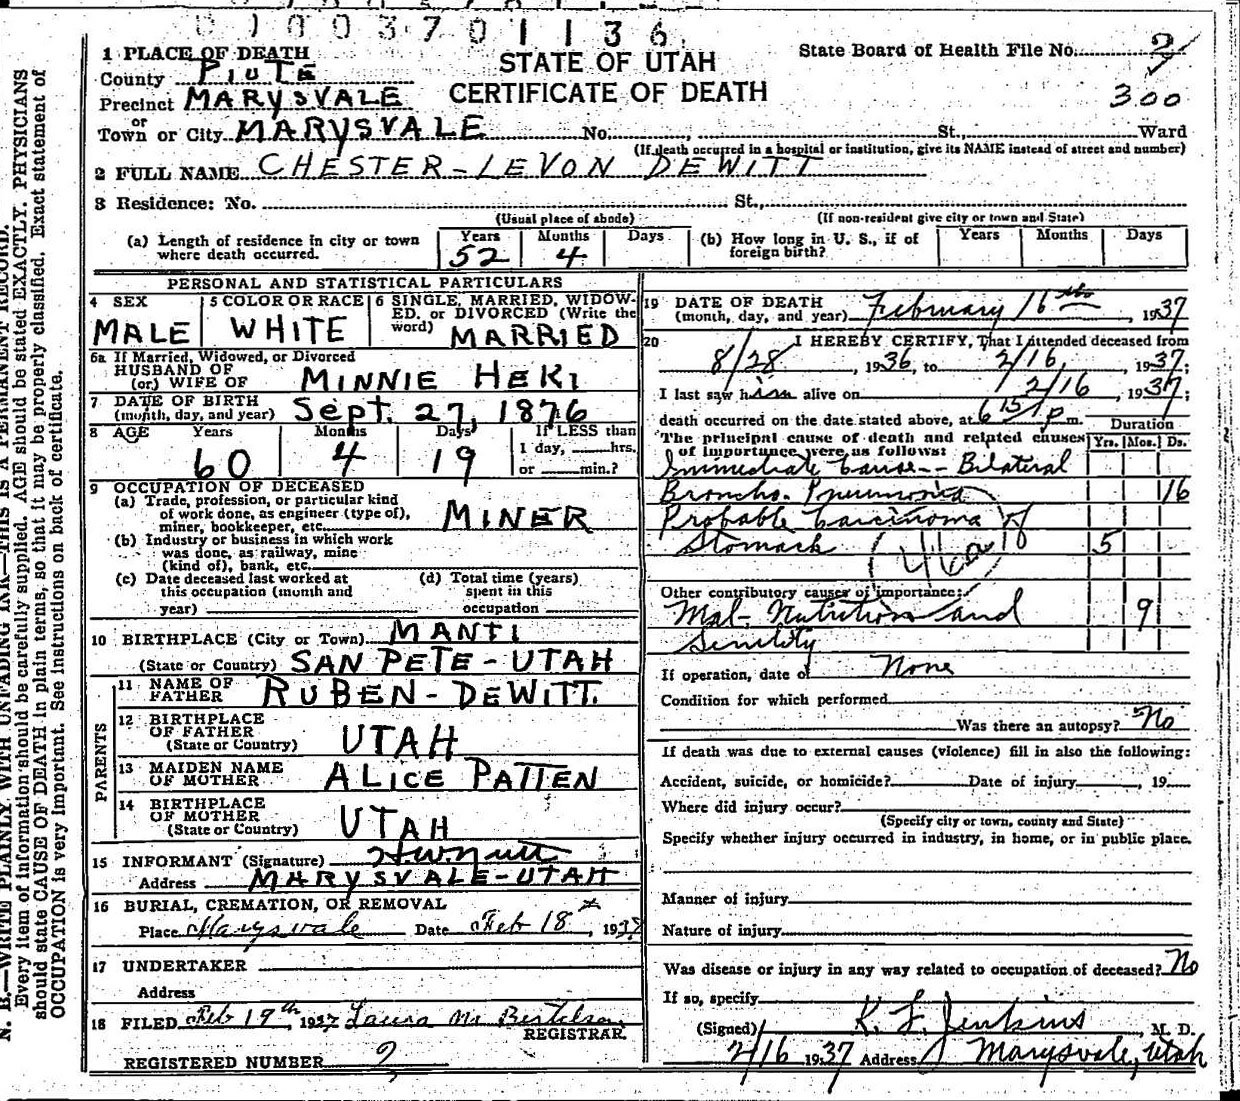 0 1 0 0 3 7 0 1 1 3 6
STATE OF UTAH
CERTIFICATE OF DEATH
State Board of Health File No. 2
300
1 PLACE OF DEATH
County PIUTE
Precinct MARYSVALE
or
Town or City MARYSVALE No. , St., Ward
(If death occurred in a hospital or institution, give its NAME instead of street and number)
2 FULL NAME CHESTER-LEVON DEWITT
3 Residence: No. St.,
(Usual place of abode) (If non-resident give city or town and State)
(a) Length of residence in city or town where death occurred. Years 52 Months 4 Days
(b) How long in U. S., if of foreign birth? Years Months Days
PERSONAL AND STATISTICAL PARTICULARS
4 SEX MALE
5 COLOR OR RACE WHITE
6 SINGLE, MARRIED, WIDOWED. or DIVORCED (Write the word) MARRIED
6a If Married, Widowed, or Divorced
HUSBAND OF
(or) WIFE OF MINNIE HEKI
7 DATE OF BIRTH
(month, day, and year) Sept. 27, 1876
8 AGE Years 60 Months 4 Days 19 If LESS than
1 day, hrs.
or min.?
9 OCCUPATION OF DECEASED
(a) Trade, profession, or particular kind
of work done, as engineer (type of),
miner, bookkeeper, etc. MINER
(b) Industry or business in which work
was done, as railway, mine
(kind of), bank, etc.
(c) Date deceased last worked at
this occupation (month and
year)
(d) Total time (years)
spent in this
occupation
10 BIRTHPLACE (City or Town) MANTI
(State or Country) SAN PETE-UTAH
PARENTS
11 NAME OF
FATHER RUBEN-DEWITT.
12 BIRTHPLACE
OF FATHER
(State or Country) UTAH
13 MAIDEN NAME
OF MOTHER ALICE PATTEN
14 BIRTHPLACE
OF MOTHER
(State or Country) UTAH
15 INFORMANT (Signature)
Address MARYSVALE-UTAH
16 BURIAL, CREMATION, OR REMOVAL
Place Marysvale Date Feb 18, 1937
17 UNDERTAKER
Address
18 FILED Feb 19th, 1937 Laura M. Bertelsen
REGISTRAR.
REGISTERED NUMBER 2
19 DATE OF DEATH
(month, day, and year) February 16th, 1937
20 I HEREBY CERTIFY, That I attended deceased from
8/28 1936, to 2/16, 1937;
I last saw him alive on 2/16, 1937;
death occurred on the date stated above, at 6 15 p m.
Duration
The principal cause of death and related causes
of importance were as follows: Yrs. Mos. Ds.
Immediate Cause-- Bilateral
Broncho. Pneumonia 16
Probable Carcinoma of
Stomach 5
46a
Other contributory causes of importance:
Mal-Nutrition and 9
Senility
If operation, date of None
Condition for which performed
Was there an autopsy? No
If death was due to external causes (violence) fill in also the following:
Accident, suicide, or homicide? Date of injury , 19
Where did injury occur?
(Specify city or town, county and State)
Specify whether injury occurred in industry, in home, or in public place.
Manner of injury
Nature of injury
Was disease or injury in any way related to occupation of deceased? No
If so, specify
(Signed) K. L. Jenkins, M. D.
2/16 1937 Address Marysvale, Utah
N. B.—WRITE PLAINLY WITH UNFADING INK—THIS IS A PERMANENT RECORD.
Every item of information should be carefully supplied. AGE should be stated EXACTLY. PHYSICIANS
should state CAUSE OF DEATH in plain terms, so that it may be properly classified. Exact statement of
OCCUPATION is very important. See instructions on back of certificate.